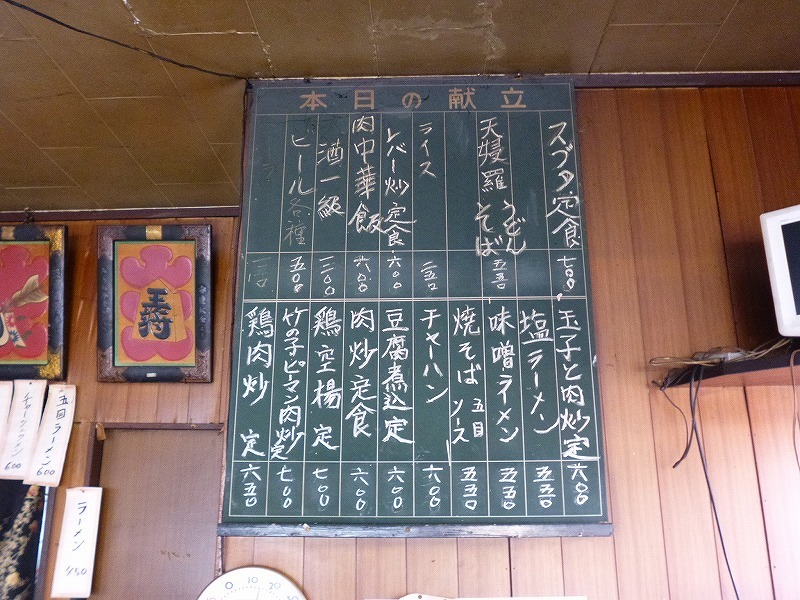 本日の献立
スブタ定食 七〇〇
天婦羅 うどん そば 五五〇
ライス 二五〇
レバー炒定食 六〇〇
肉中華飯 六〇〇
酒一級
ビール各種 五〇〇
玉子と肉炒定 六〇〇
塩ラーメン 五五〇
味噌ラーメン 五五〇
焼そば 五目 ソース 五五〇
チャーハン 六〇〇
豆腐煮込定 六〇〇
肉炒定食 六〇〇
鶏空揚定 七〇〇
竹の子ピーマン肉炒定 七〇〇
鶏肉炒 定 六五〇
王将
五目ラーメン 600
チャーシューメン 600
ラーメン 450
0 10 20 30